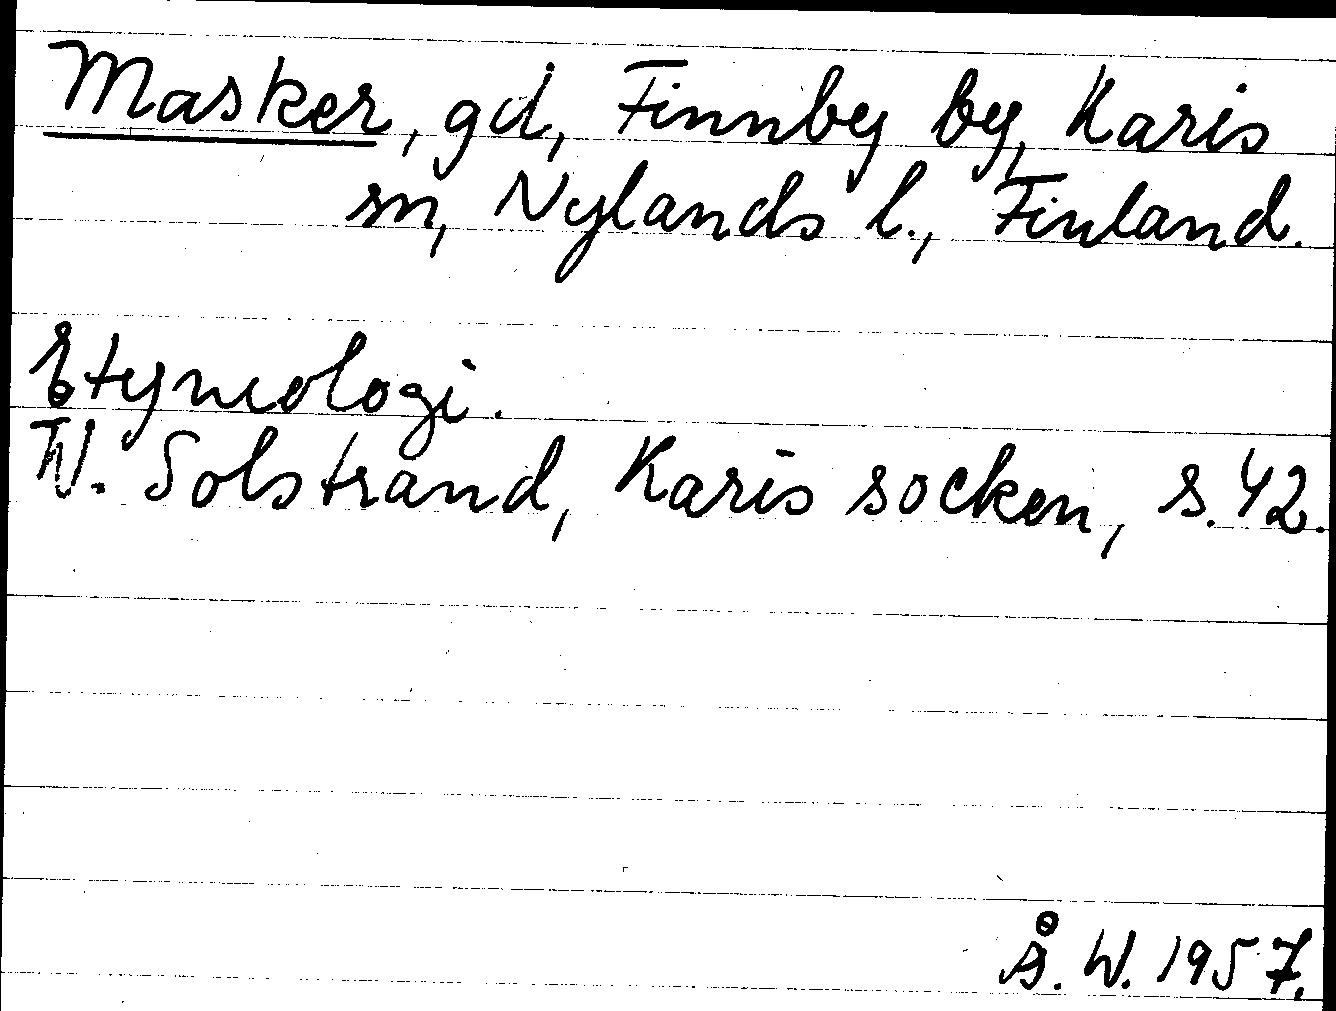 Masker, gd, Finnby by, Karis
sn, Nylands l., Finland.
Etymologi.
W. Solstrand, Karis socken, s. 42.
Å. W. 1957.